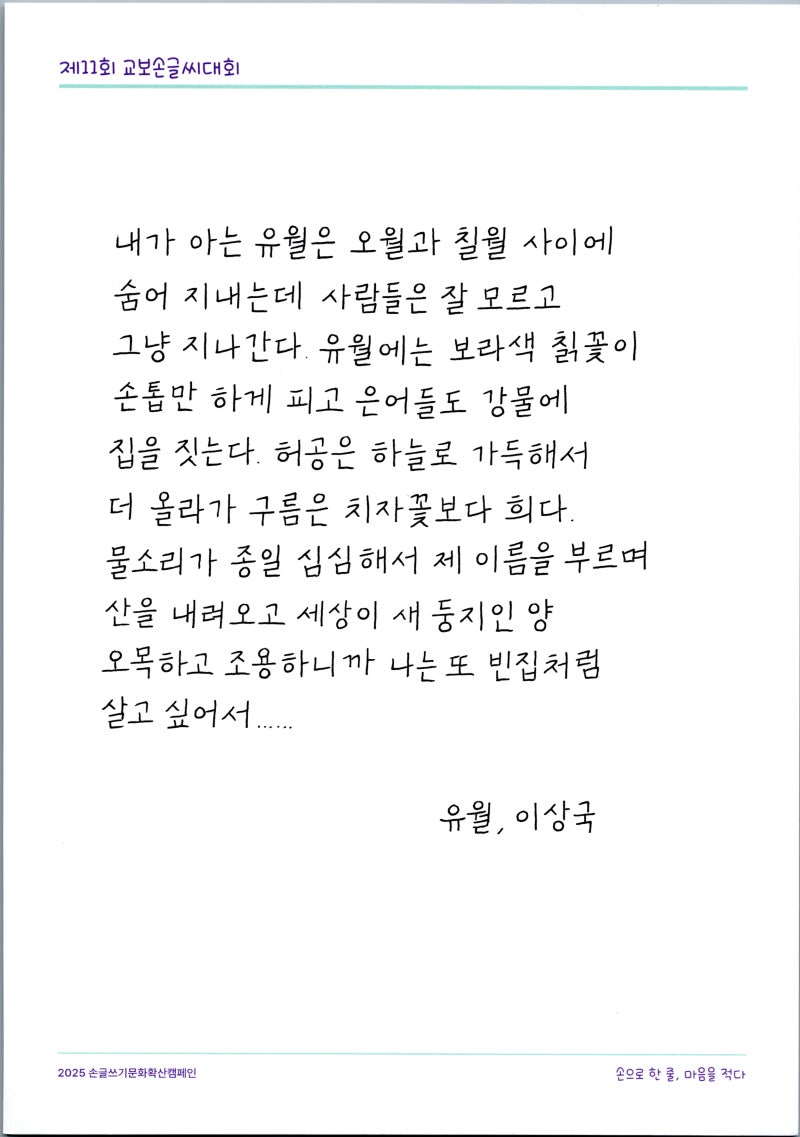 제11회 교보손글씨대회
내가 아는 유월은 오월과 칠월 사이에
숨어 지내는데 사람들은 잘 모르고
그냥 지나간다. 유월에는 보라색 칡꽃이
손톱만 하게 피고 은어들도 강물에
집을 짓는다. 허공은 하늘로 가득해서
더 올라가 구름은 치자꽃보다 희다.
물소리가 종일 심심해서 제 이름을 부르며
산을 내려오고 세상이 새 둥지인 양
오목하고 조용하니까 나는 또 빈집처럼
살고 싶어서......
유월, 이상국
2025 손글쓰기문화확산캠페인
손으로 한 줄, 마음을 적다